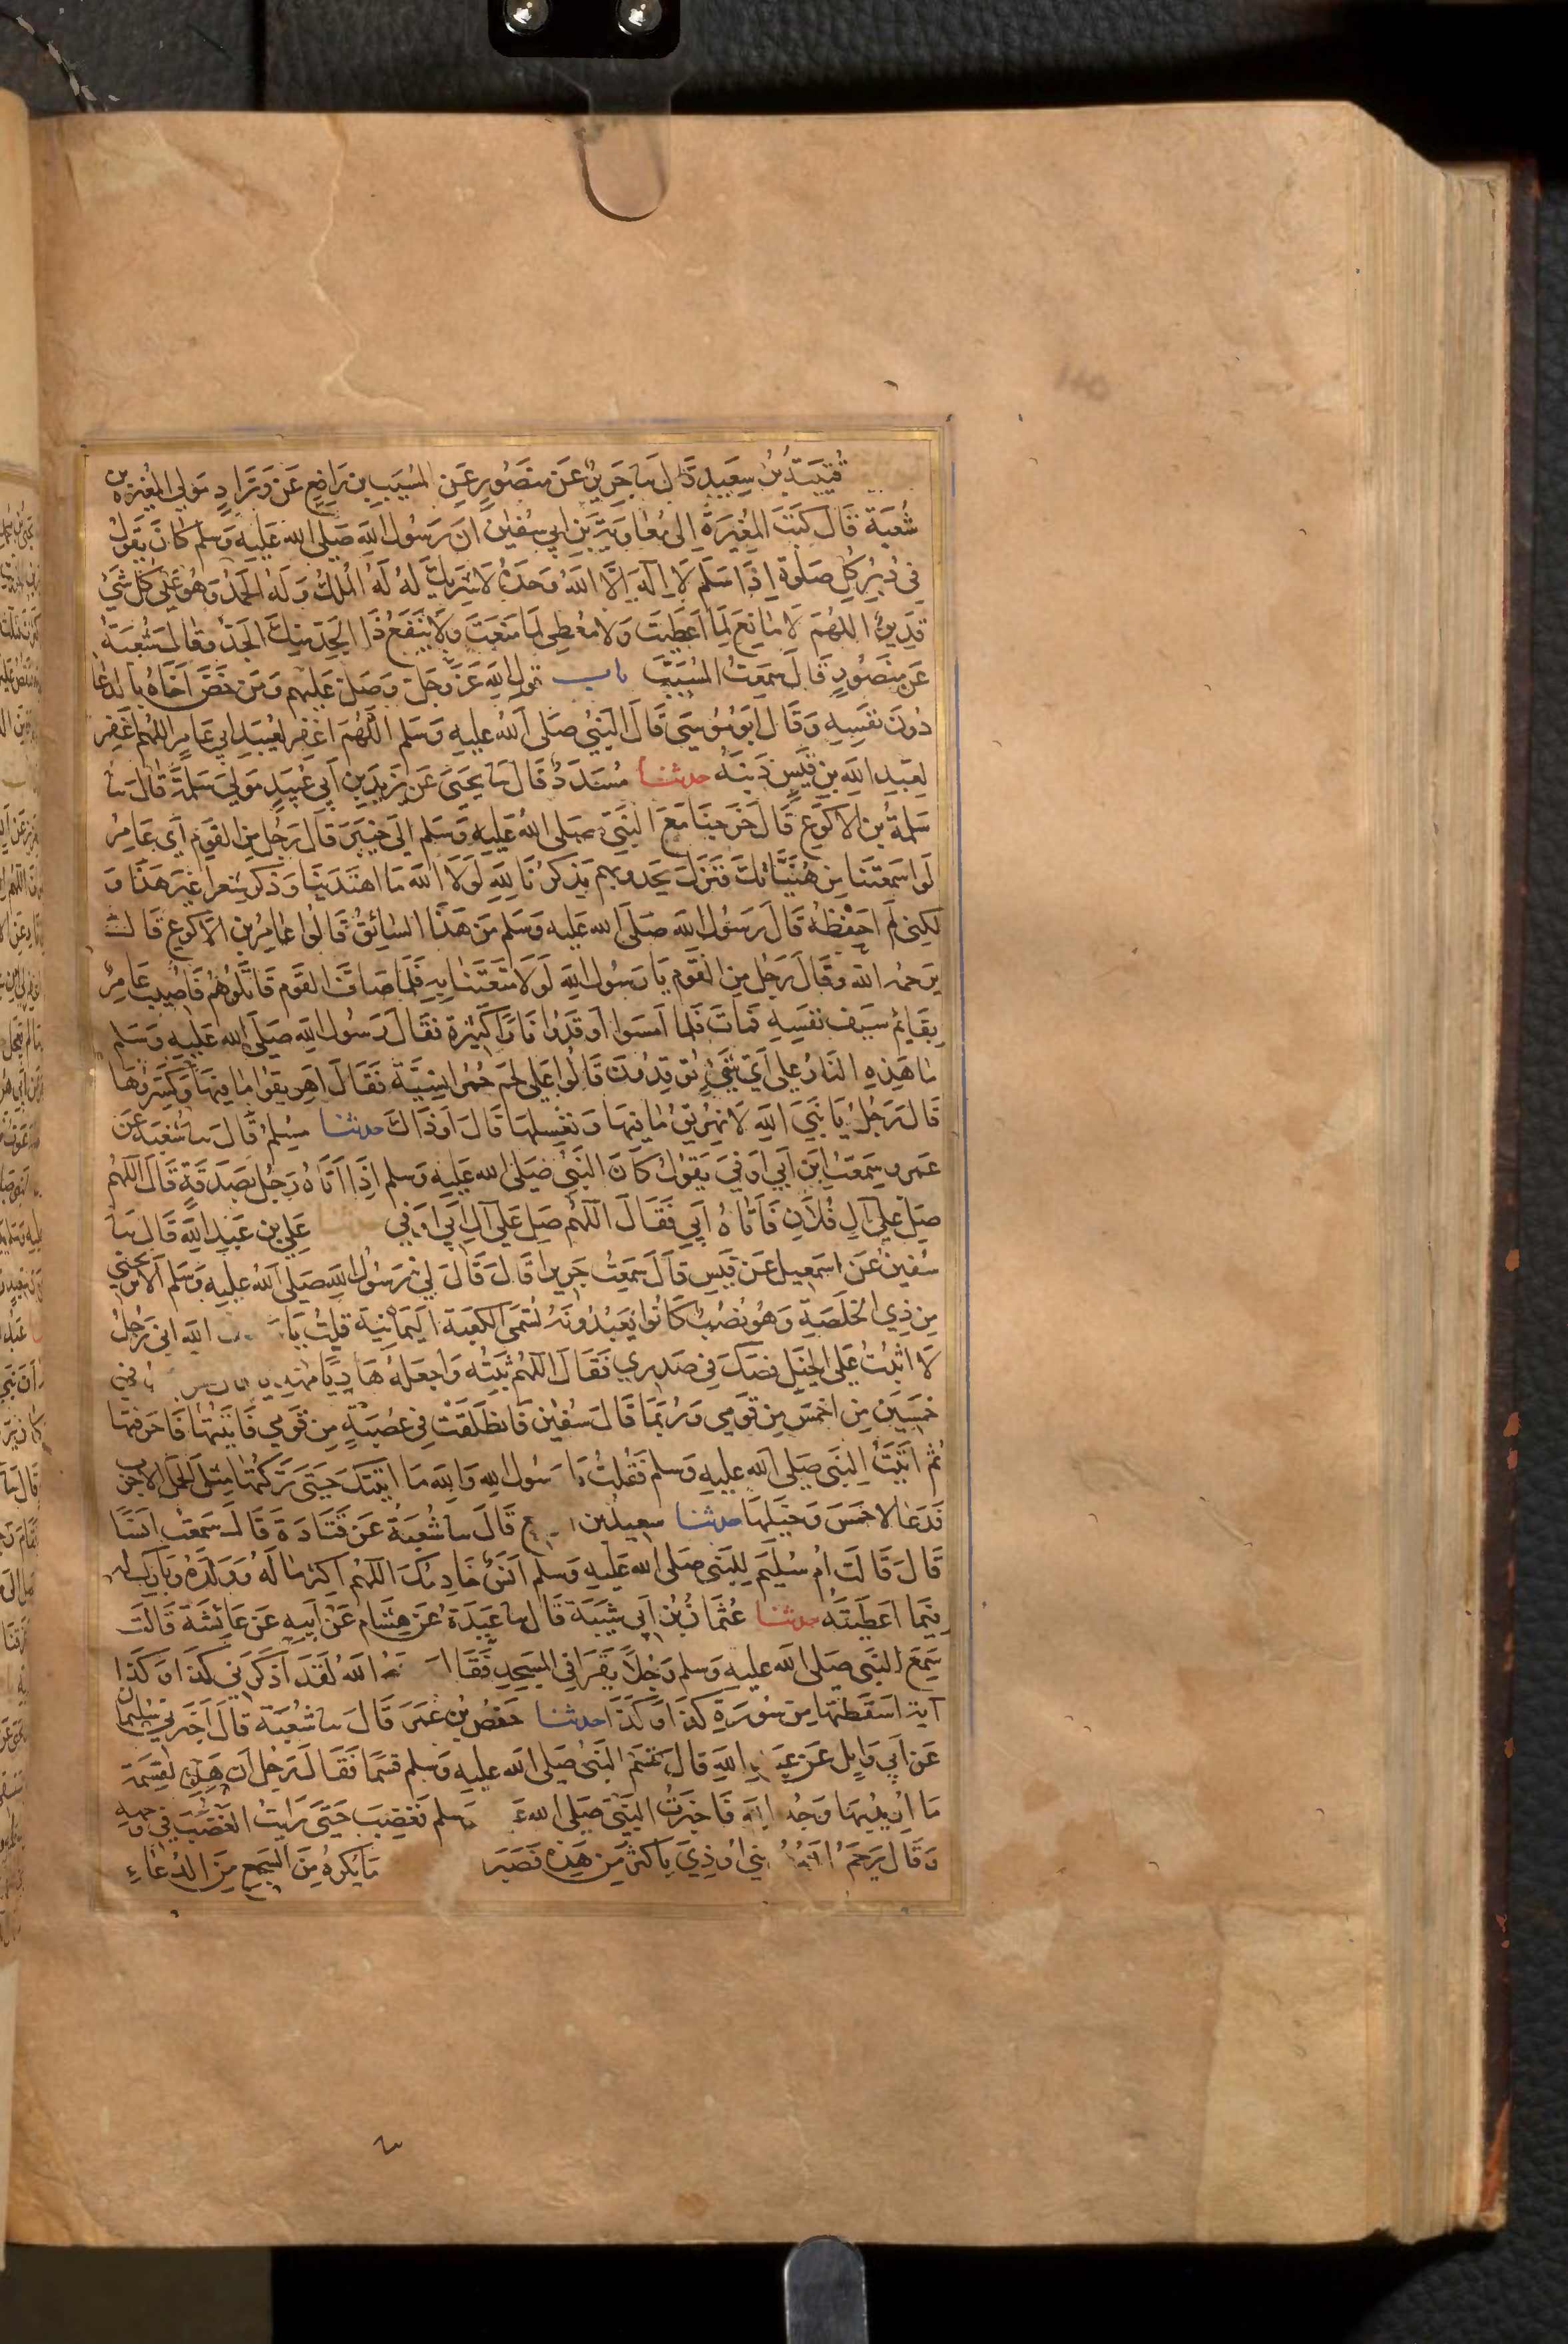 قُتَيبَةُ بنُ سَعِيدٍ قَالَ سا جَرِيرٌ عَن مَنصُورٍ عَنِ المُسَيَّبِ بنِ رَافِعٍ عَن وَرَّادٍ مَولَى المُغِيرَةِ بن
شُعبَةَ قَالَ كَتَبَ المُغِيرَةُ اِلى مُعَاوِيَةَ بنِ ابي سُفيٰنَ اَنَّ رَسُولَ اللهِ صَلى الله عَليهِ وَسَلم كَانَ يَقولُ
فِي دُبُرِ كُلِّ صَلٰوة اِذَا سَلَّمَ لَا اِلٰهَ اِلَّا اللهُ وَحدَهُ لَا شَرِيكَ لَهُ لَهُ المُلكُ وَلَهُ الحَمدُ وَهُوَ عَلى كُلِّ شَيْ
قَدِيرٌ اللهُمَّ لَا مَانِعَ لِمَا اَعطَيتَ وَلَا مُعطِى لِمَا مَنَعتَ وَلَا يَنفَعُ ذَا الجَدِّ مِنكَ الجَدُّ وَقَالَ شُعبَةُ
عَن مَنصُورٍ قَالَ سَمِعتُ المُسَيَّبَ باب قول اللهِ عَزَّ وَجَلَّ وَصَلِّ عَلَيهِم وَمَن خَصَّ اَخَاهُ بِالدُعَا
دُونَ نَفسِهِ وَقَالَ اَبُو مُوسَى قَالَ النَبِيُّ صَلى اللهُ عَليهِ وَسَلم اللّهُمَّ اغفِر لِعُبَيدٍ ابِي عَامِرٍ اللهُم اغفِر
لِعَبدِ اللهِ بنِ قَيسٍ ذَنبَهُ حدثنا مُسَدَّدٌ قَالَ سا يَحيَى عَن يَزِيدَ بنِ اَبِي عُبَيدٍ مَولَى سَلمَةَ قَالَ سا
سَلَمَةُ بنُ الاَكوَعِ قَالَ خَرَجنَا مَعَ النَبيِّ صَلى اللهُ عَلَيهِ وَسَلم اِلَى خَيبَرَ قَالَ رَجُلٌ مِنَ القَومِ اَي عَامِرُ
لَو اَسمَعتَنَا مِن هُنَيَّاتِكَ فَنَزَلَ يَحدُو بِهِم يُذَكِّرُ تَاللهِ لَولَا اللهُ مَا اهتَدَينَا وَذَكَرَ شِعرا غَيرَ هَذَا وَ
لَكِنِي لَم اَحفَظهُ قَالَ رَسُولُ اللهِ صَلَى الله عَليه وَسَلم مَن هَذَا السَائِقُ قَالُوا عَامِرُ بنُ الاَكوَع قَالَ
يَرحمه الله وَقَالَ رَجُلٌ مِنَ القَوم يَا رَسُولَ اللهِ لَولَا مَتَّعتَنَا بِهِ فَلَمَّا صَافَّ القَوم قَاتَلُوهُم فَاُصِيبَ عَامِرٌ
بِقَائِمِ سَيفِ نَفسِهِ فَمَاتَ فَلَمَا اَمسَوا اَوقَدُوا نَارًا كَثِيرَةً فَقَالَ رَسُولُ اللهِ صَلَى اللهُ عَليهِ وَسَلم
مَا هَذِهِ النَارُ عَلى اَيِّ شَيْءٍ تُوقِدُونَ قَالُوا عَلى لَحمِ حُمُرٍ اِنسِيَّةٍ فَقَالَ اَهرِيقُوا مَا فِيهَا وَكَسِّرُوهَا
قَالَ رَجُلٌ يَا نَبِيَ اللهِ اَلَا نُهرِيقُ مَا فِيهَا وَنَغسِلهَا قَالَ اَو ذَاكَ حدثنا مُسلِمٌ قَالَ سا شُعبَةُ عَن
عَمرٍو سَمِعتُ ابنَ اَبِي اَوفَى يَقُولُ كَانَ النَبِيُّ صَلى الله عَلَيهِ وَسَلم اِذَا اَتَاهُ رَجُلٌ بِصَدَقَةٍ قَالَ اللهُم
صَلِّ عَلى آلِ فُلَانٍ فَاَتَاهُ اَبِي فَقَالَ اللهُم صَلِّ عَلى آلِ اَبِي اَوفَى عَلِي بن عَبدِ اللهِ قَالَ سا
سُفيٰنُ عَن اسمٰعِيلَ عَن قَيسٍ قَالَ سَمِعتُ جَرِيرا قَالَ قَالَ لِي رَسُولُ اللهِ صَلَى اللهُ عليهِ وَسَلم اَلَا تُرِيحُنِي
مِن ذِي الخَلَصَةِ وَهُوَ نُصُبٌ كَانُوا يَعبُدُونَهُ تُسَمَّى الكَعبَةَ اليَمَانِيَةَ قُلتُ يَا الله اِنِي رَجُلٌ
لَا اَثبُتُ عَلَى الخَيلِ فَصَكَّ فِي صَدرِي فَقَالَ اللهُم ثَبِّتهُ وَاجعَلهُ هَادِيًا مَهدِيا في
خَمسِينَ مِن اَحمَسَ مِن قَومِي وَرُبَّمَا قَالَ سُفيٰن فَانطَلَقتُ فِي عُصبَةٍ مِن قَومِي فَاَتَيتُهَا فَاَحرَقتُهَا
ثُمَّ اَتَيتُ النَبِيَ صَلى الله عَلَيهِ وَسَلم فَقُلتُ يَا رَسُولَ اللهِ وَاللهِ مَا اَتَيتُكَ حَتَّى تَرَكتُهَا مِثلَ الجَمَلِ الاَجرَب
فَدَعَا لِاَحمَسَ وَخَيلِهَا حدثنا سَعِيدُ بن ع قَالَ سا شُعبَةُ عَن قَتَادَةَ قَالَ سَمِعتُ اَنَسًا
قَالَ قَالَت اُمُّ سُلَيمٍ لِلنَبيِ صَلى الله عَلَيهِ وَسَلم اَنَسٌ خَادِمُكَ اللهُم اَكثِر مَالَهُ وَوَلَدَهُ وَبَارِك لَه
فِيمَا اَعطَيتَهُ حدثنا عُثمَانُ بنُ اَبِي شَيبَةَ قَالَ سا عَبدَةُ عَن هِشَامٍ عَن اَبِيهِ عَن عَائِشَةَ قَالَت
سَمِعَ النَبِيُ صَلى الله عَليهِ وَسَلم رَجُلًا يَقرَا فِي المَسجِدِ فَقَالَ الله لَقَد اَذكَرَنِي كَذَا وَكَذَا
آيَة اَسقَطتُهَا مِن سُورَةِ كَذَا وَكَذَا حدثنا حَفصُ بنُ عُمَرَ قَالَ سا شُعبَةُ قَالَ اَخبَرَنِي سُلَيمانُ
عَن اَبِي وَائِلٍ عَن عَبدِ اللهِ قَالَ قَسَمَ النَبيُ صَلى الله عَليهِ وَسَلم قَسمًا فَقَالَ رَجُلٌ اِن هَذِهِ لَقِسمَة
مَا اُرِيدَ بِهَا وَجهُ اللهِ فَاَخبَرتُ النَبيَ صَلَى الله وَسلم فَغَضِبَ حَتَّى رَاَيتُ الغَضَبَ فِي وَجهِهِ
وَقَالَ يَرحَمُ اللهُ اُوذِيَ بِاَكثَرَ مِن هَذَا فَصَبَرَ مَا يُكرَهُ مِنَ السَجعِ مِنَ الدُعَاءِ